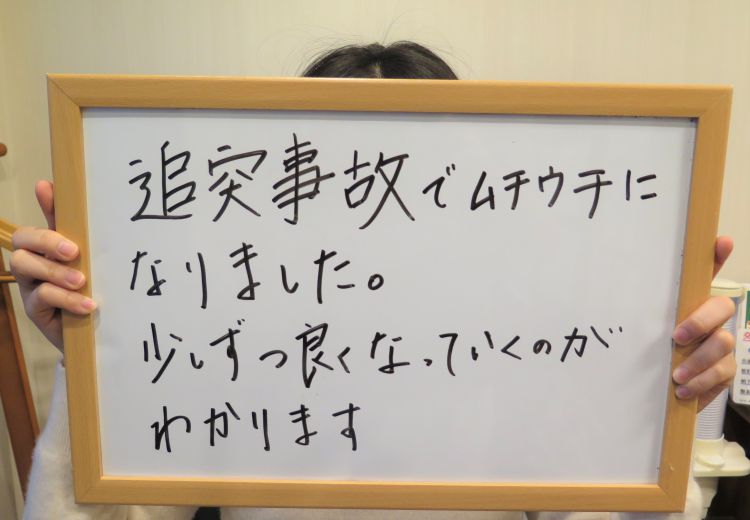 追突事故でムチウチに
なりました。
少しずつ良くなっていくのが
わかります